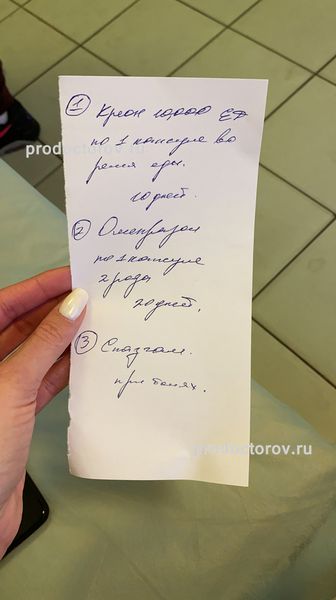 ① Креон 10000 ЕД
по 1 капсуле во
время еды.
10 дней.
② Омепразол
по 1 капсуле
2 раза
20 дней.
③ Спазган.
при болях.
prodoctorov.ru
prodoctorov.ru